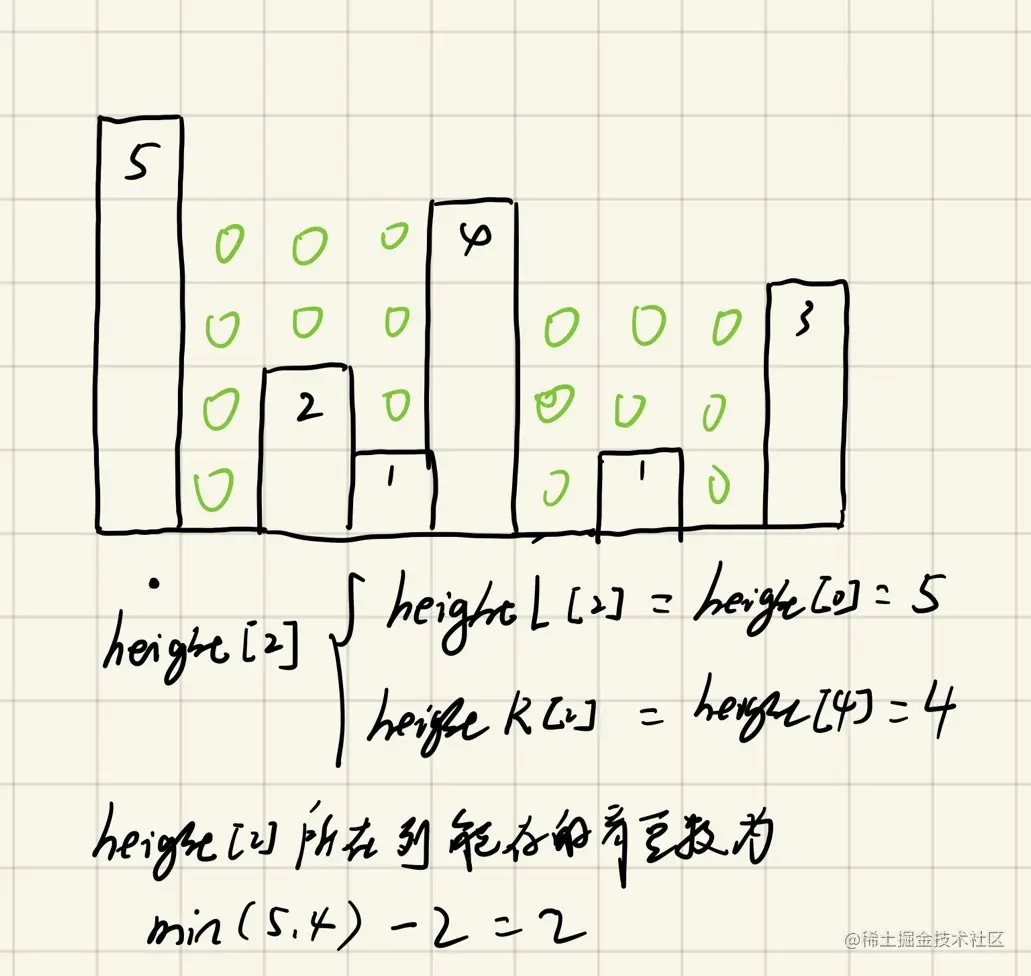 5
4
3
2
1
1
heightL[2] = height[0] = 5
height[2]
heightR[2] = height[4] = 4
height[2]所在列能存的青豆数为
min(5,4) - 2 = 2
@稀土掘金技术社区